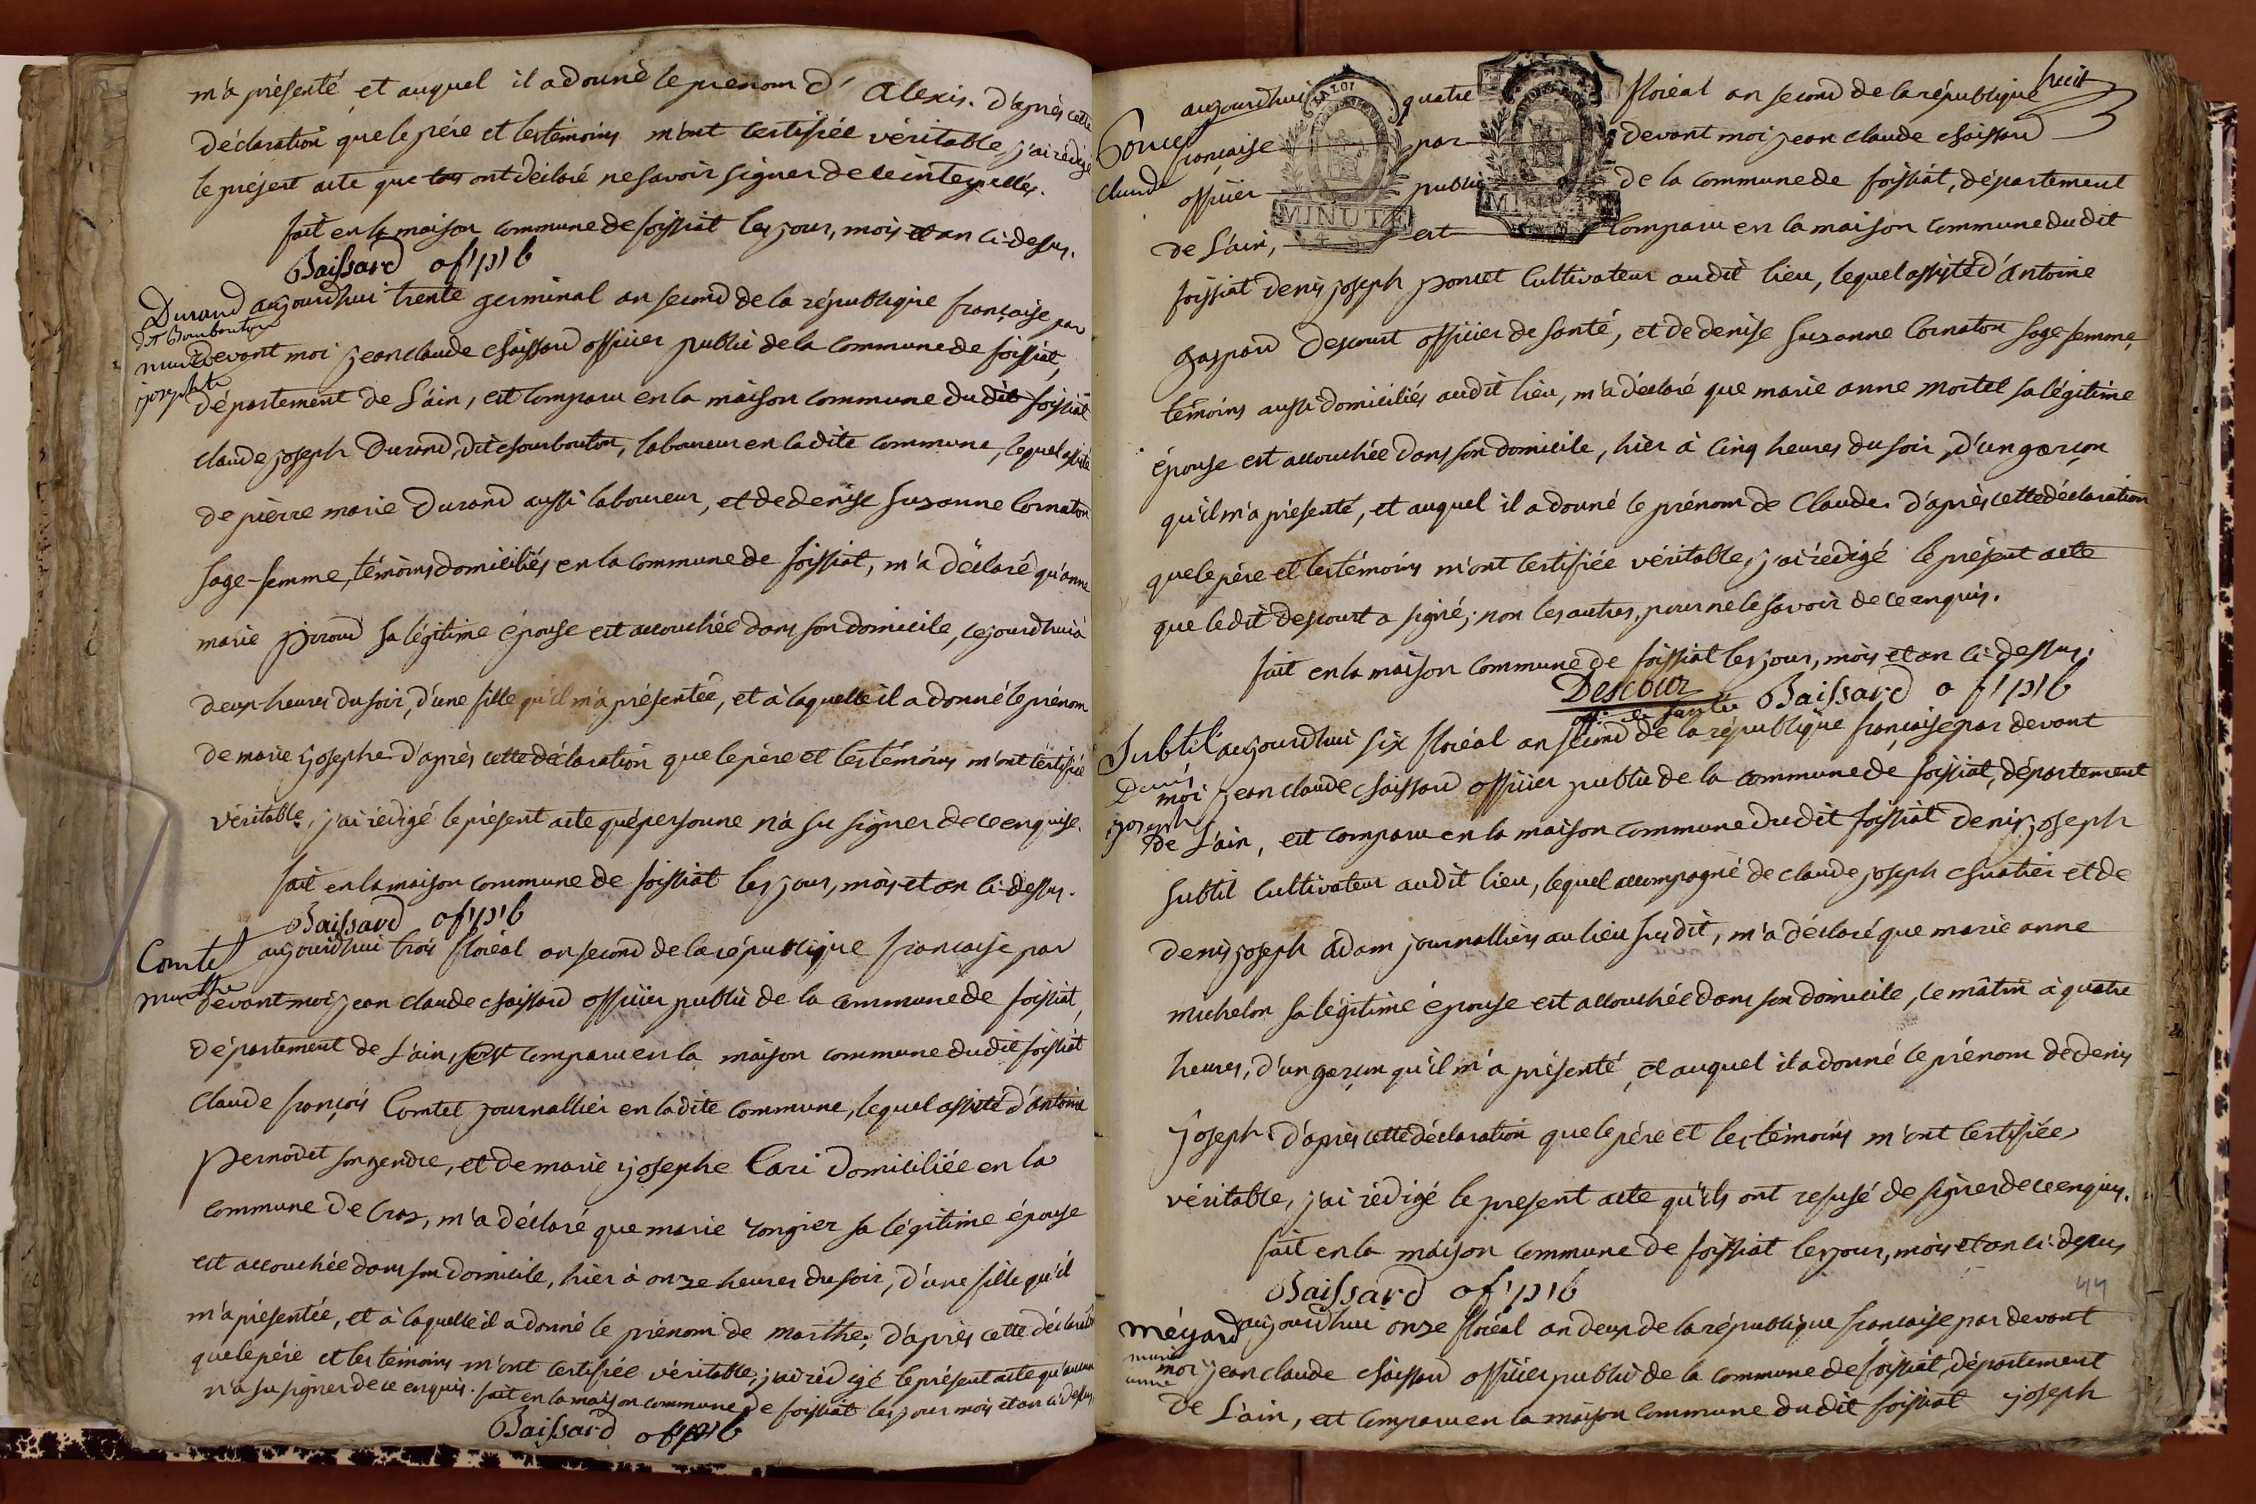 m'a présenté et auquel il a donné le prénom d'Alexis. d'après cette
déclaration que le père et les témoins m'ont certifiée véritable, j'ai rédigé
le présent acte que tous ont déclaré ne savoir signer de ce interpellés.
fait en la maison commune de foissiat les jour, mois et an ci-dessus.
Baissard of. pub
Durand
dit Bourbouton
marie
josephte
aujourdhui trente germinal an second de la république françoise par
devant moi jean claude Baissard officier public de la commune de foissiat,
département de L'ain, est comparu en la maison commune dudit foissiat
claude joseph Durand, dit Bourbouton, laboureur en ladite commune, lequel assisté
de pierre marie Durand aussi laboureur, et de denise suzanne Cornaton
sage-femme, témoins domiciliés en la commune de foissiat, m'a déclaré qu'anne
marie Piroud sa légitime épouse est accouchée dans son domicile, cejourdhui à
deux heures du soir, d'une fille qu'il m'a présentée, et à laquelle il a donné le prénom
de marie josephe. d'après cette déclaration que le père et les témoins m'ont certifiée
véritable, j'ai rédigé le présent acte que personne n'a su signer de ce enquise.
fait en la maison commune de foissiat les jour, mois et an ci-dessus.
Baissard of. pub
Comtet
marthe
aujourdhui trois floréal an second de la république françoise par
devant moi jean claude Baissard officier public de la commune de foissiat,
département de L'ain, est comparu en la maison commune dudit foissiat
claude françois Comtet journallier en ladite commune, lequel assisté d'antoine
Pernodet son gendre, et de marie josephe Cari domiciliée en la
commune de Cras, m'a déclaré que marie rongier sa légitime épouse
est accouchée dans son domicile, hier à onze heures du soir, d'une fille qu'il
m'a présentée, et à laquelle il a donné le prénom de marthe; d'après cette déclaration
que le père et les témoins m'ont certifiée véritable, j'ai rédigé le présent acte qu'aucun
n'a su signer de ce enquis. fait en la maison commune de foissiat les jour mois et an ci dessus.
Baissard of. pub
huit
Poncet
claude
LA LOI
MINUTE
MINUTE
aujourdhui quatre floréal an second de la république
françoise par devant moi jean claude Baissard
officier public de la commune de foissiat, département
de L'ain, est comparu en la maison commune dudit
foissiat denis joseph poncet Cultivateur audit lieu, lequel assisté d'antoine
gaspard Descourt officier de santé, et de denise suzanne Cornaton sage femme,
témoins aussi domiciliés audit lieu, m'a déclaré que marie anne mortel sa légitime
épouse est accouchée dans son domicile, hier à cinq heures du soir, d'un garçon
qu'il m'a présenté, et auquel il a donné le prénom de Claude. d'après cette déclaration
que le père et les témoins m'ont certifiée véritable, j'ai rédigé le présent acte
que ledit descourt a signé; non les autres, pour ne le savoir de ce enquis.
fait en la maison commune de foissiat les jour, mois et an ci-dessus.
Descour
off. de santé Baissard of. pub
Subtil
Denis
joseph
aujourdhui six floréal an second de la république françoise par devant
moi jean claude Baissard officier public de la commune de foissiat, département
de L'ain, est comparu en la maison commune dudit foissiat denis joseph
subtil Cultivateur audit lieu, lequel accompagné de claude joseph et de
denis joseph adam journalliers au lieu susdit, m'a déclaré que marie anne
michelon sa légitime épouse est accouchée dans son domicile, ce mâtin à quatre
heures, d'un garçon qu'il m'a présenté, et auquel il a donné le prénom de denis
joseph. d'après cette déclaration que le père et les témoins m'ont certifiée
véritable, j'ai rédigé le présent acte qu'ils ont refusé de signer de ce enquis.
fait en la maison commune de foissiat les jour, mois et an ci-dessus
Baissard of. pub
44
méyard
marie
anne
aujourdhui onze floréal an deux de la république françoise par devant
moi jean claude Baissard officier public de la commune de foissiat, département
de L'ain, est comparu en la maison commune dudit foissiat joseph